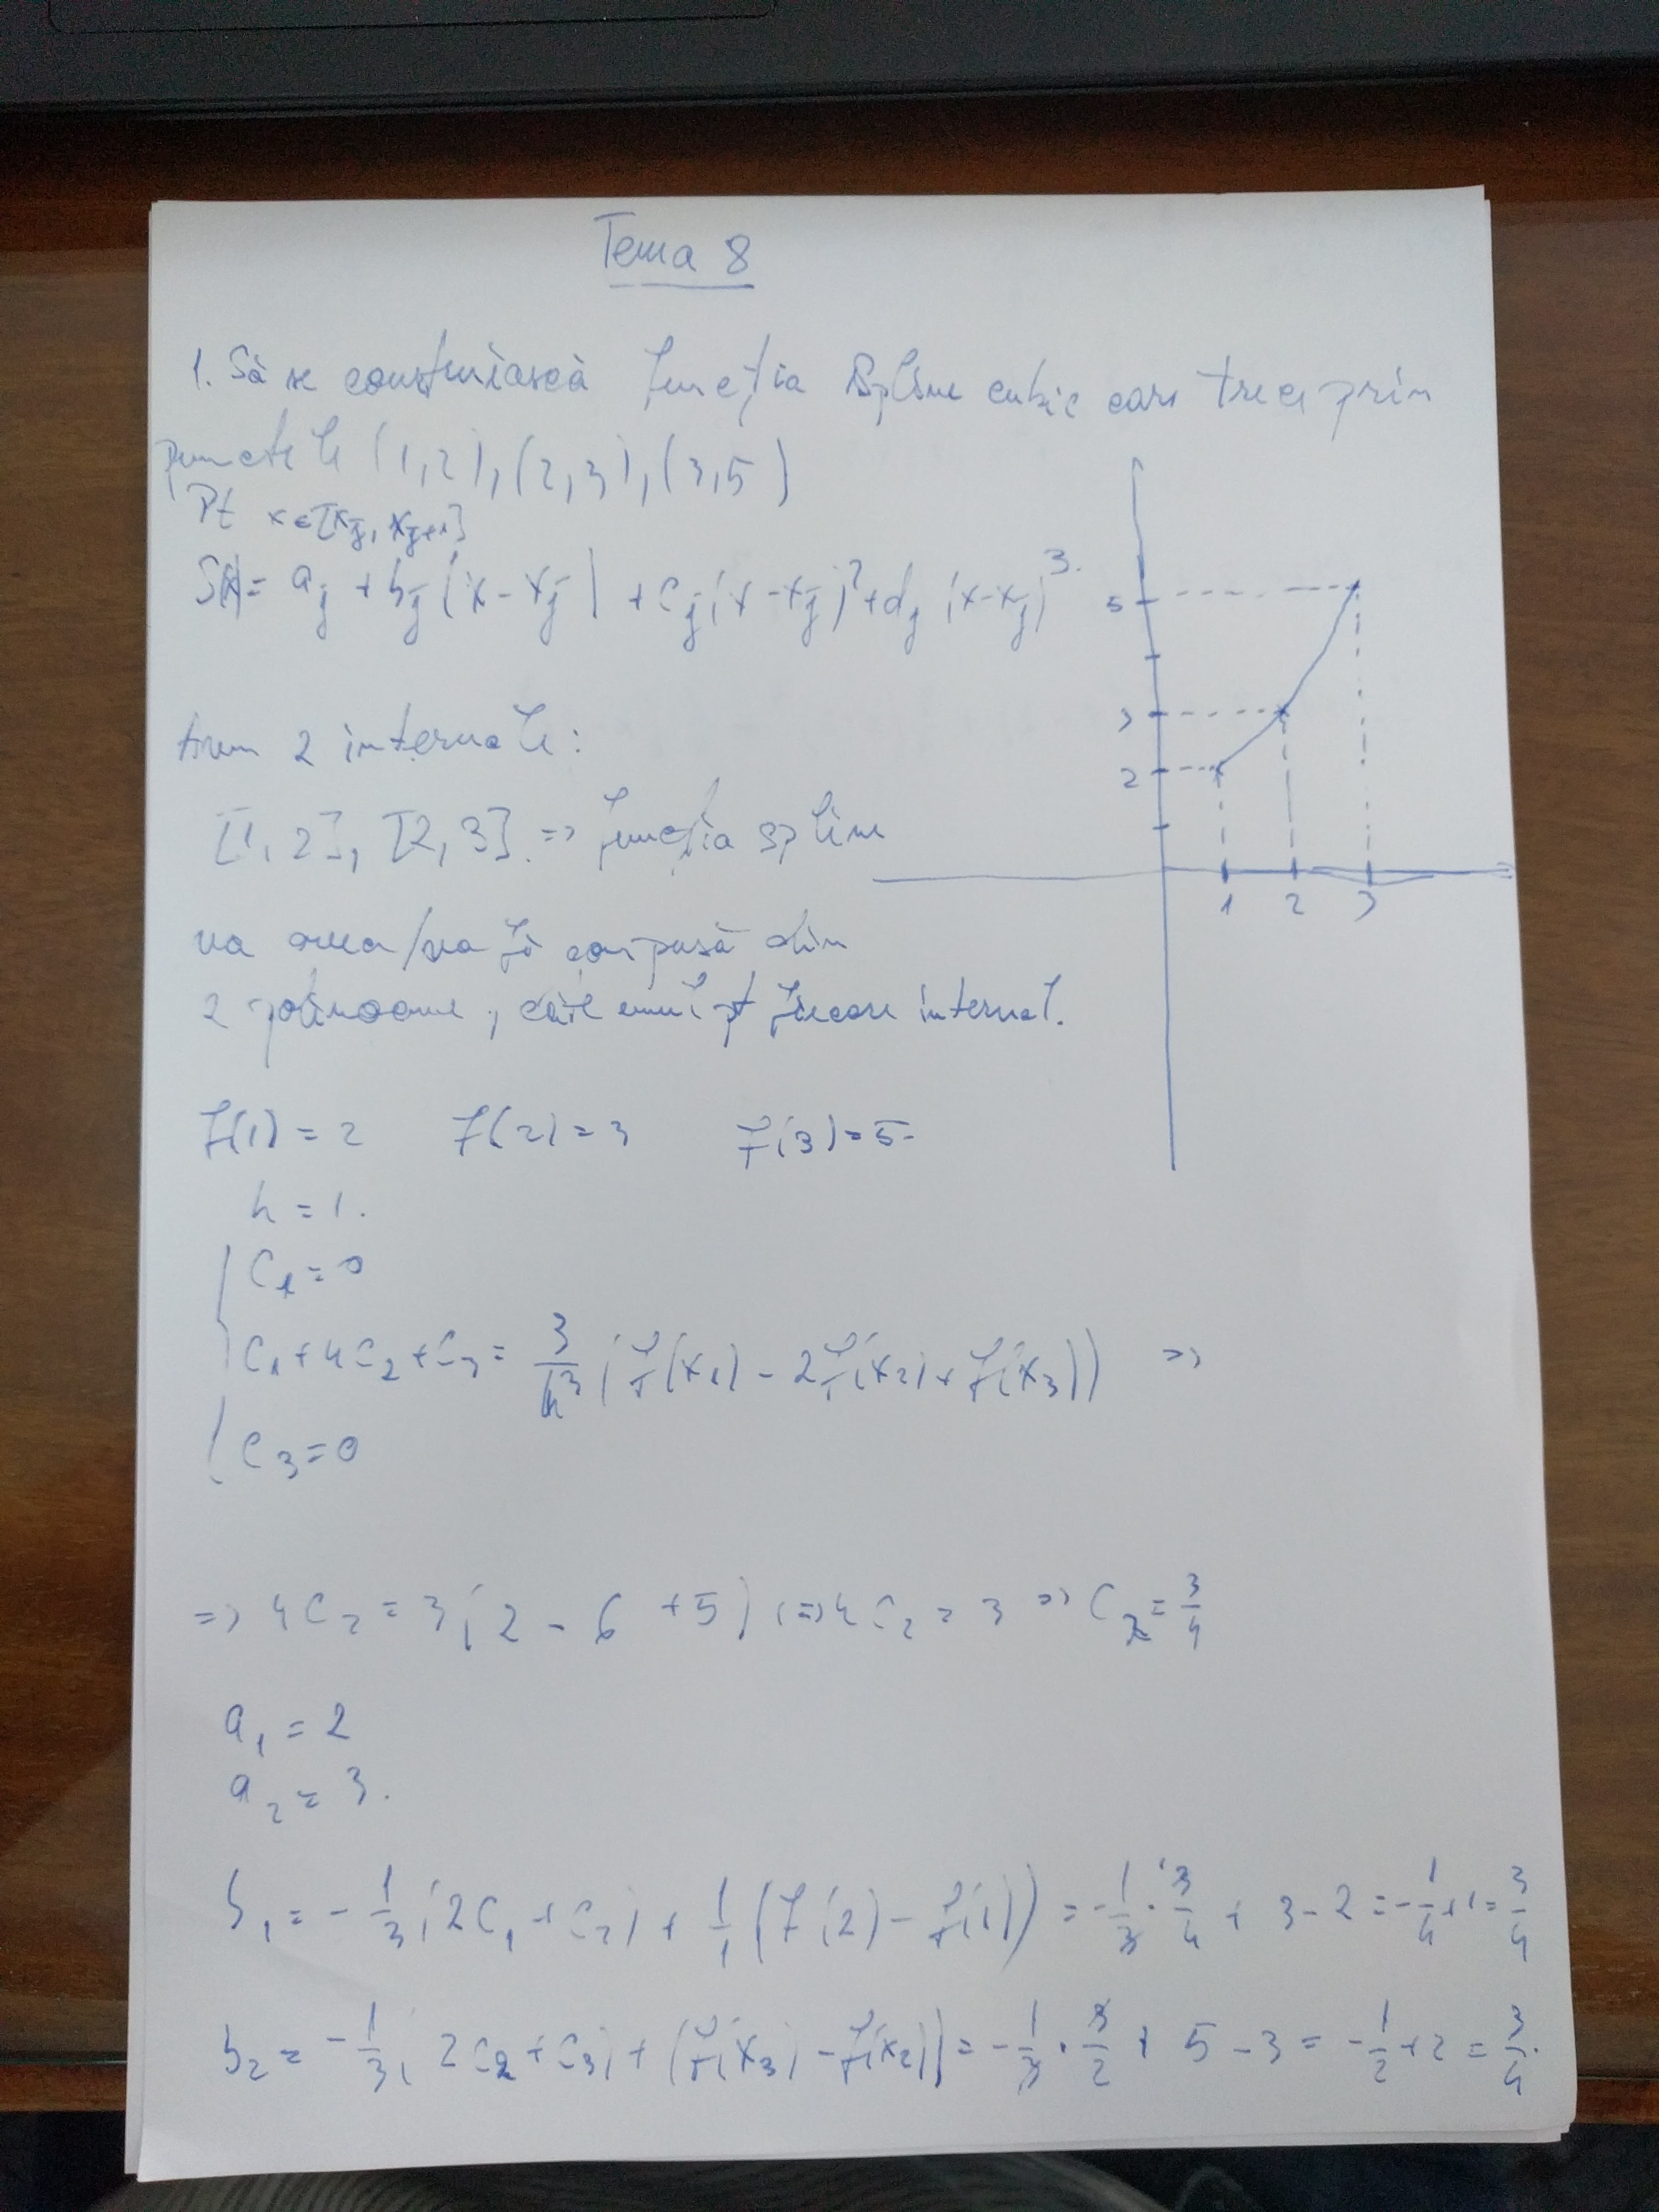 Tema 8
1. Să se construiască funcția Spline cubic care trece prin
punctele (1,2), (2,3), (3,5)
Pt x∈[x_j, x_{j+1}]
S(x) = a_j + b_j (x - x_j) + c_j (x - x_j)^2 + d_j (x - x_j)^3.
Avem 2 intervale:
[1,2], [2,3]. => funcția spline
va avea/va fi compusă din
2 polinoame, câte unul pt fiecare interval.
5
3
2
1 2 3
f(1) = 2 f(2) = 3 f(3) = 5
h = 1.
c_1 = 0
c_1 + 4c_2 + c_3 = 3/h^2 (f(x_1) - 2f(x_2) + f(x_3)) =>
c_3 = 0
=> 4c_2 = 3(2 - 6 + 5) (=> 4c_2 = 3 => c_2 = 3/4
a_1 = 2
a_2 = 3.
b_1 = -1/3 (2c_1 + c_2) + 1/1 (f(2) - f(1)) = -1/3 · 3/4 + 3 - 2 = -1/4 + 1 = 3/4
b_2 = -1/3 (2c_2 + c_3) + (f(x_3) - f(x_2)) = -1/3 · 3/2 + 5 - 3 = -1/2 + 2 = 3/4.